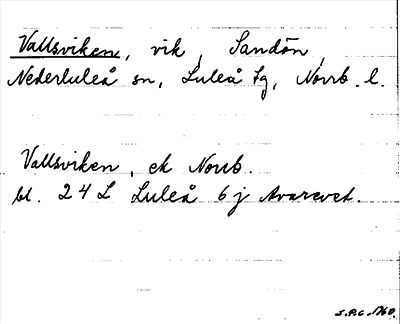 Vallsviken, vik, Sandön,
Nederluleå sn, Luleå tg, Norrb. l.
Vallsviken, ek Norrb.
bl. 24 L Luleå 6 j Avarevet.
S.P.C. 1960.